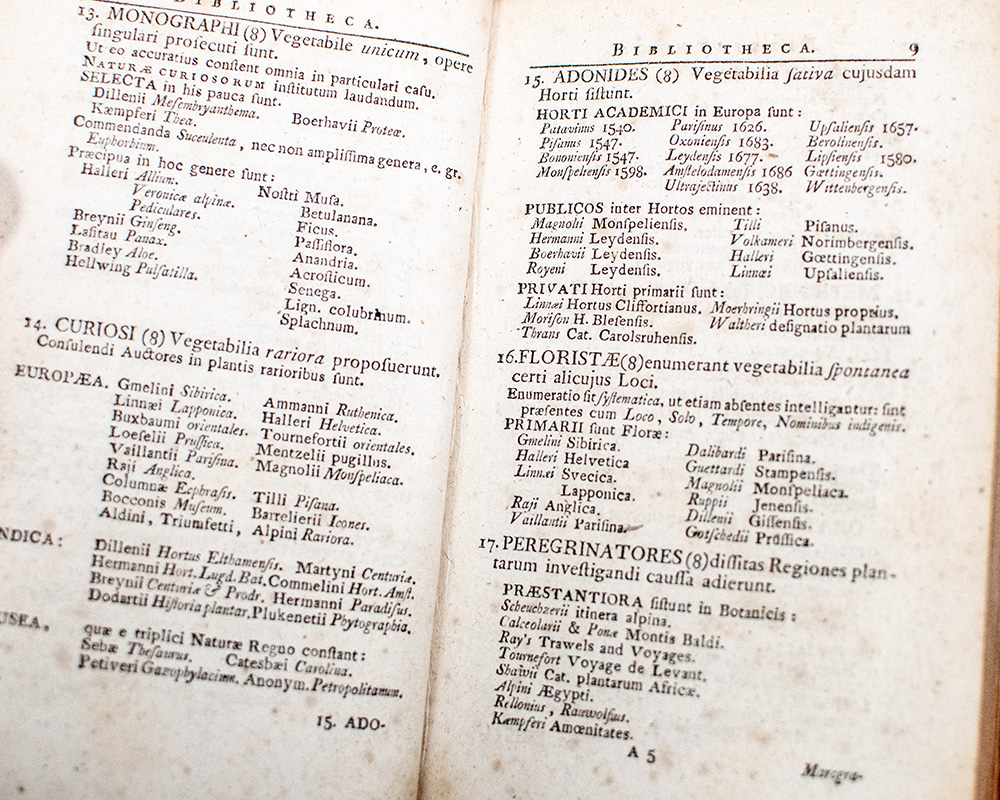 BIBLIOTHECA.
13. MONOGRAPHI (8) Vegetabile unicum, opere
singulari proſecuti ſunt.
Ut eo accuratius conſtent omnia in particulari caſu.
NATURÆ CURIOSORUM inſtitutum laudandum.
SELECTA in his pauca ſunt.
Dillenii Meſembryanthema. Boerhavii Proteæ.
Kæmpferi Thea.
Commendanda Succulenta, nec non ampliſſima genera, e. gr.
Euphorbium.
Præcipua in hoc genere ſunt:
Halleri Allium. Noſtri Muſa.
Veronicæ alpinæ. Betulanana.
Pediculares. Ficus.
Breynii Ginſeng. Paſſiflora.
Lafitau Panax. Anandria.
Bradley Aloe. Acroſticum.
Hellwing Pulſatilla. Senega.
Lign. colubrinum.
Splachnum.
14. CURIOSI (8) Vegetabilia rariora propoſuerunt.
Conſulendi Auctores in plantis rarioribus ſunt.
EUROPÆA. Gmelini Sibirica. Ammanni Ruthenica.
Linnæi Lapponica. Halleri Helvetica.
Buxbaumi orientales. Tournefortii orientales.
Loeſelii Pruſſica. Mentzelii pugillus.
Vaillantii Pariſina. Magnolii Monſpeliaca.
Raji Anglica.
Columnæ Ecphraſis. Tilli Piſana.
Bocconis Muſeum. Barrelierii Icones.
Aldini, Triumfetti, Alpini Rariora.
NDICA: Dillenii Hortus Elthamenſis. Martyni Centuriæ.
Hermanni Hort. Lugd. Bat. Commelini Hort. Amſt.
Breynii Centuriæ & Prodr. Hermanni Paradiſus.
Dodartii Hiſtoria plantar. Plukenetii Phytographia.
USEA, quæ e triplici Naturæ Regno conſtant:
Sebæ Theſaurus. Catesbæi Carolina.
Petiveri Gazophylacium. Anonym. Petropolitanum.
15. ADO-
BIBLIOTHECA. 9
15. ADONIDES (8) Vegetabilia ſativa cujusdam
Horti ſiſtunt.
HORTI ACADEMICI in Europa ſunt:
Patavinus 1540. Pariſinus 1626. Upſalienſis 1657.
Piſanus 1547. Oxonienſis 1683. Berolinenſis.
Bononienſis 1547. Leydenſis 1677. Lipſienſis 1580.
Monſpelienſis 1598. Amſtelodamenſis 1686 Gœttingenſis.
Ultrajectinus 1638. Wittenbergenſis.
PUBLICOS inter Hortos eminent:
Magnolii Monſpelienſis. Tilli Piſanus.
Hermanni Leydenſis. Volkameri Norimbergenſis.
Boerhavii Leydenſis. Halleri Gœttingenſis.
Royeni Leydenſis. Linnæi Upſalienſis.
PRIVATI Horti primarii ſunt:
Linnæi Hortus Cliffortianus. Moerhringii Hortus proprius.
Moriſon H. Bleſenſis. Waltheri deſignatio plantarum
Thrans Cat. Carolsruhenſis.
16. FLORISTÆ (8) enumerant vegetabilia ſpontanea
certi alicujus Loci.
Enumeratio ſit ſyſtematica, ut etiam abſentes intelligantur: ſint
præſentes cum Loco, Solo, Tempore, Nominibus indigenis.
PRIMARII ſunt Floræ:
Gmelini Sibirica. Dalibardi Pariſina.
Halleri Helvetica Guettardi Stampenſis.
Linnæi Svecica. Magnolii Monſpeliaca.
Lapponica. Ruppii Jenenſis.
Raji Anglica. Dillenii Giſſenſis.
Vaillantii Pariſina. Gotſchedii Pruſſica.
17. PEREGRINATORES (8) diſſitas Regiones plan-
tarum inveſtigandi cauſſa adierunt.
PRÆSTANTIORA ſiſtunt in Botanicis:
Scheuchzerii itinera alpina.
Calceolarii & Ponæ Montis Baldi.
Ray's Trawels and Voyages.
Tournefort Voyage de Levant.
Shawii Cat. plantarum Africæ.
Alpini Ægypti.
Bellonius, Rauwolfius.
Kæmpferi Amœnitates.
A 5
Marcgra-